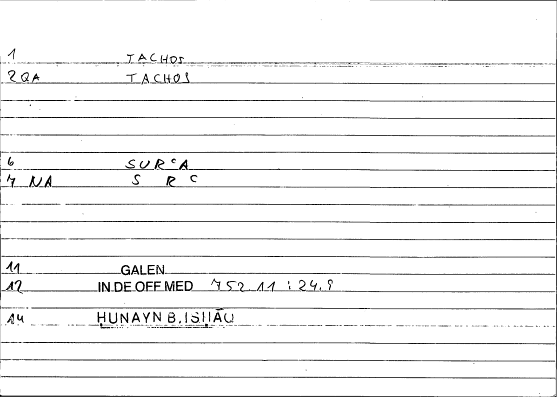 1 TACHOS
2 QA TACHOS
6 SURᶜA
7 NA S R C
11 GALEN
12 IN DE OFF MED 752 11 : 24.9
14 HUNAYN B. ISḤĀQ